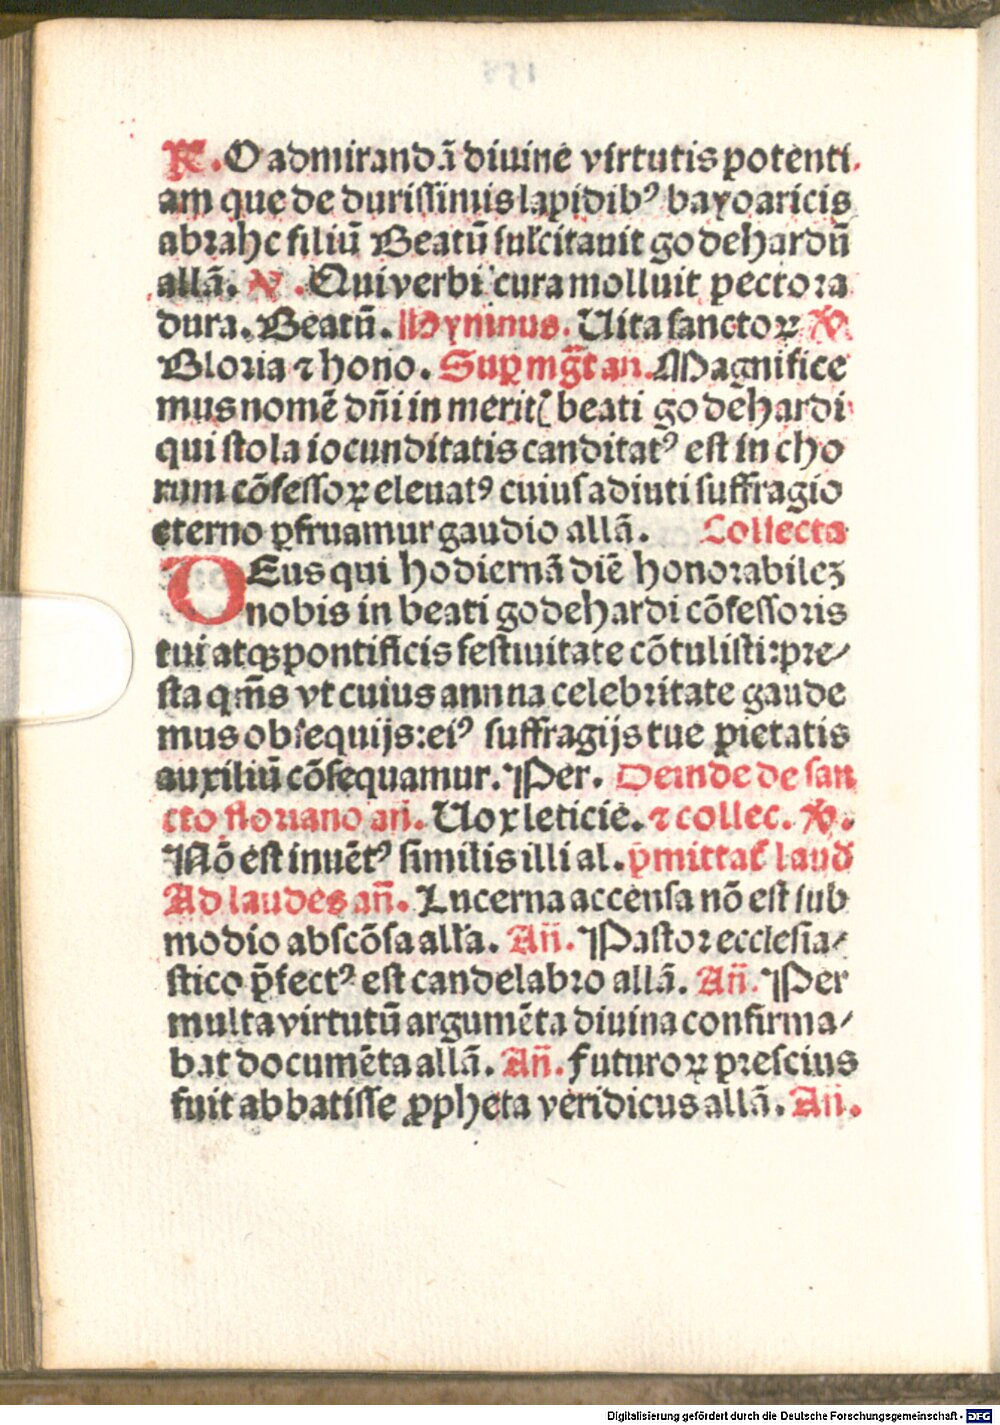 R. O admirandā diuine virtutis potenti
am que de durissimis lapidibꝰ bayoaricis
abrahe filiū Beatū suscitauit godehardū
allā. V. Qui verbi cura molluit pectora
dura. Beatū. Hymnus. Uita sanctoꝝ V
Gloria ⁊ hono. Suꝑ mg̃t an. Magnifice
mus nomē dn̄i in meritꝭ beati godehardi
qui stola iocunditatis canditatꝰ est in cho
rum cōfessoꝝ eleuatꝰ cuius adiuti suffragio
eterno ꝑfruamur gaudio allā. Collecta
DEus qui hodiernā diē honorabilem
nobis in beati godehardi cōfessoris
tui atqꝫ pontificis festiuitate cōtulisti: pre/
sta qm̄s vt cuius annna celebritate gaude
mus obsequijs: eiꝰ suffragijs tue pietatis
auxiliū cōsequamur. Per. Deinde de san
cto floriano an̄. Uox leticie. ⁊ collec. V.
Nō est inuētꝰ similis illi al. p̄mittat᷑ laud
Ad laudes an̄. Lucerna accensa nō est sub
modio abscōsa alľa. An̄. Pastor ecclesia/
stico p̄fectꝰ est candelabro allā. An̄. Per
multa virtutū argumēta diuina confirma/
bat documēta allā. An̄. Futuroꝝ prescius
fuit abbatisse ꝓpheta veridicus allā. An̄.
Digitalisierung gefördert durch die Deutsche Forschungsgemeinschaft - DFG